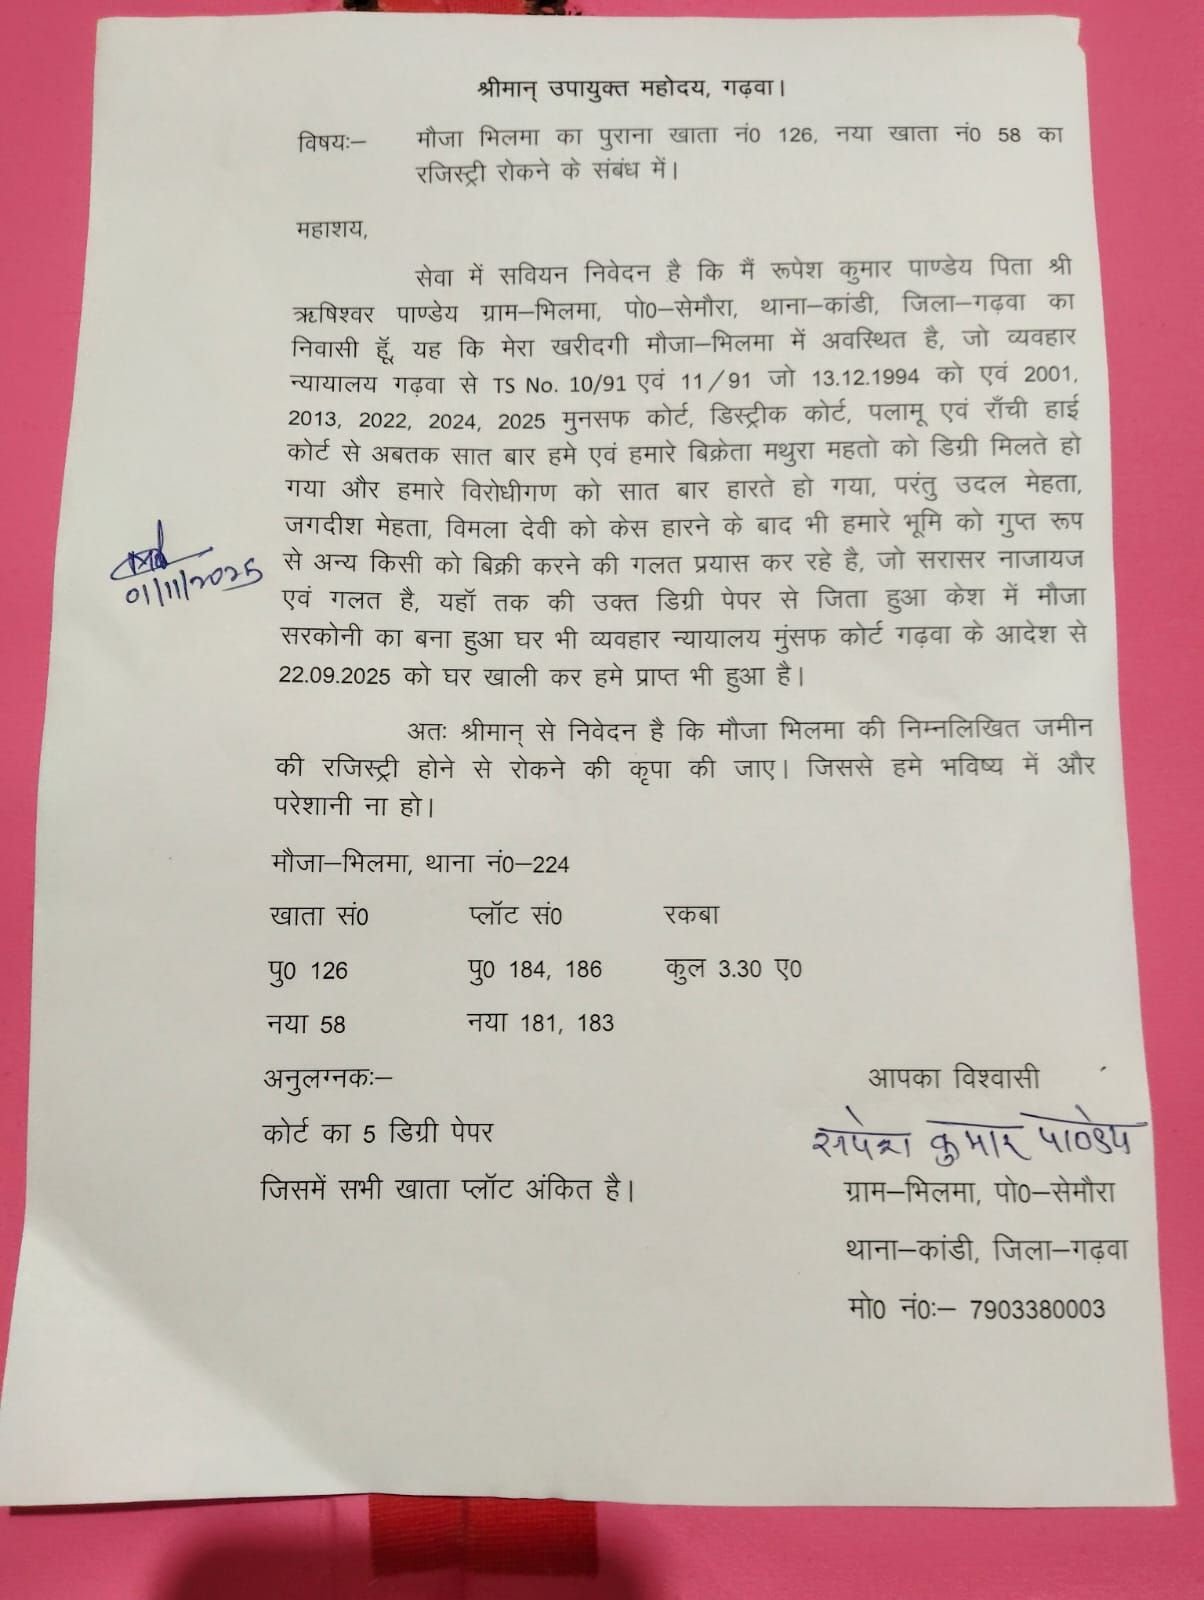 श्रीमान् उपायुक्त महोदय, गढ़वा।
विषयः– मौजा भिलमा का पुराना खाता नं0 126, नया खाता नं0 58 का
रजिस्ट्री रोकने के संबंध में।
महाशय,
सेवा में सवियन निवेदन है कि मैं रूपेश कुमार पाण्डेय पिता श्री
ऋषिश्वर पाण्डेय ग्राम–भिलमा, पो0–सेमौरा, थाना–कांडी, जिला–गढ़वा का
निवासी हूॅं, यह कि मेरा खरीदगी मौजा–भिलमा में अवस्थित है, जो व्यवहार
न्यायालय गढ़वा से TS No. 10/91 एवं 11/91 जो 13.12.1994 को एवं 2001,
2013, 2022, 2024, 2025 मुनसफ कोर्ट, डिस्ट्रीक कोर्ट, पलामू एवं रॉंची हाई
कोर्ट से अबतक सात बार हमे एवं हमारे बिक्रेता मथुरा महतो को डिग्री मिलते हो
गया और हमारे विरोधीगण को सात बार हारते हो गया, परंतु उदल मेहता,
जगदीश मेहता, विमला देवी को केस हारने के बाद भी हमारे भूमि को गुप्त रूप
से अन्य किसी को बिक्री करने की गलत प्रयास कर रहे है, जो सरासर नाजायज
एवं गलत है, यहॉ तक की उक्त डिग्री पेपर से जिता हुआ केश में मौजा
सरकोनी का बना हुआ घर भी व्यवहार न्यायालय मुंसफ कोर्ट गढ़वा के आदेश से
22.09.2025 को घर खाली कर हमे प्राप्त भी हुआ है।
01/11/2025
अतः श्रीमान् से निवेदन है कि मौजा भिलमा की निम्नलिखित जमीन
की रजिस्ट्री होने से रोकने की कृपा की जाए। जिससे हमे भविष्य में और
परेशानी ना हो।
मौजा–भिलमा, थाना नं0–224
खाता सं0 प्लॉट सं0 रकबा
पु0 126 पु0 184, 186 कुल 3.30 ए0
नया 58 नया 181, 183
अनुलग्नकः–
कोर्ट का 5 डिग्री पेपर
जिसमें सभी खाता प्लॉट अंकित है।
आपका विश्वासी
रुपेश कुमार पाण्डेय
ग्राम–भिलमा, पो0–सेमौरा
थाना–कांडी, जिला–गढ़वा
मो0 नं0ः– 7903380003